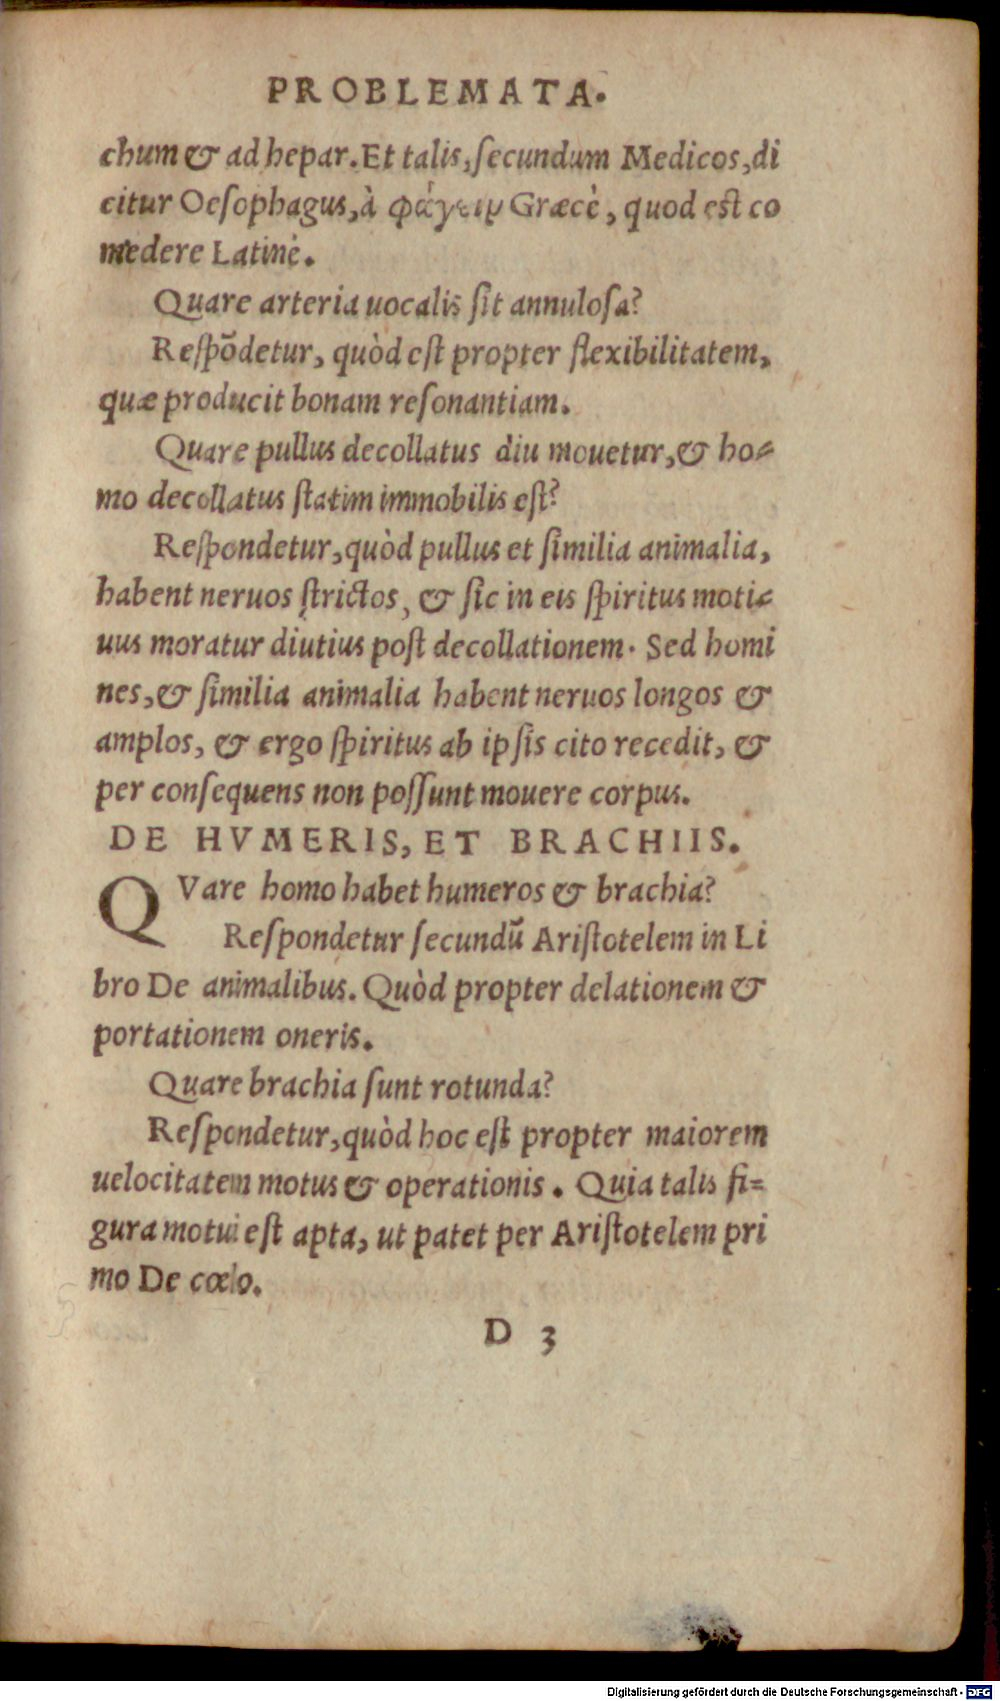 PROBLEMATA.
chum & ad hepar. Et talis, secundum Medicos, di
citur Oesophagus, à φάγειν Græcè, quod est co
medere Latinè.
Quare arteria uocalis sit annulosa?
Respõdetur, quòd est propter flexibilitatem,
quæ producit bonam resonantiam.
Quare pullus decollatus diu mouetur, & ho-
mo decollatus statim immobilis est?
Respondetur, quòd pullus et similia animalia,
habent neruos strictos, & sic in eis spiritus moti-
uus moratur diutius post decollationem. Sed homi
nes, & similia animalia habent neruos longos &
amplos, & ergo spiritus ab ipsis cito recedit, &
per consequens non possunt mouere corpus.
DE HVMERIS, ET BRACHIIS.
QVare homo habet humeros & brachia?
Respondetur secundũ Aristotelem in Li
bro De animalibus. Quòd propter delationem &
portationem oneris.
Quare brachia sunt rotunda?
Respondetur, quòd hoc est propter maiorem
uelocitatem motus & operationis. Quia talis fi-
gura motui est apta, ut patet per Aristotelem pri
mo De cœlo.
D 3
Digitalisierung gefördert durch die Deutsche Forschungsgemeinschaft - DFG